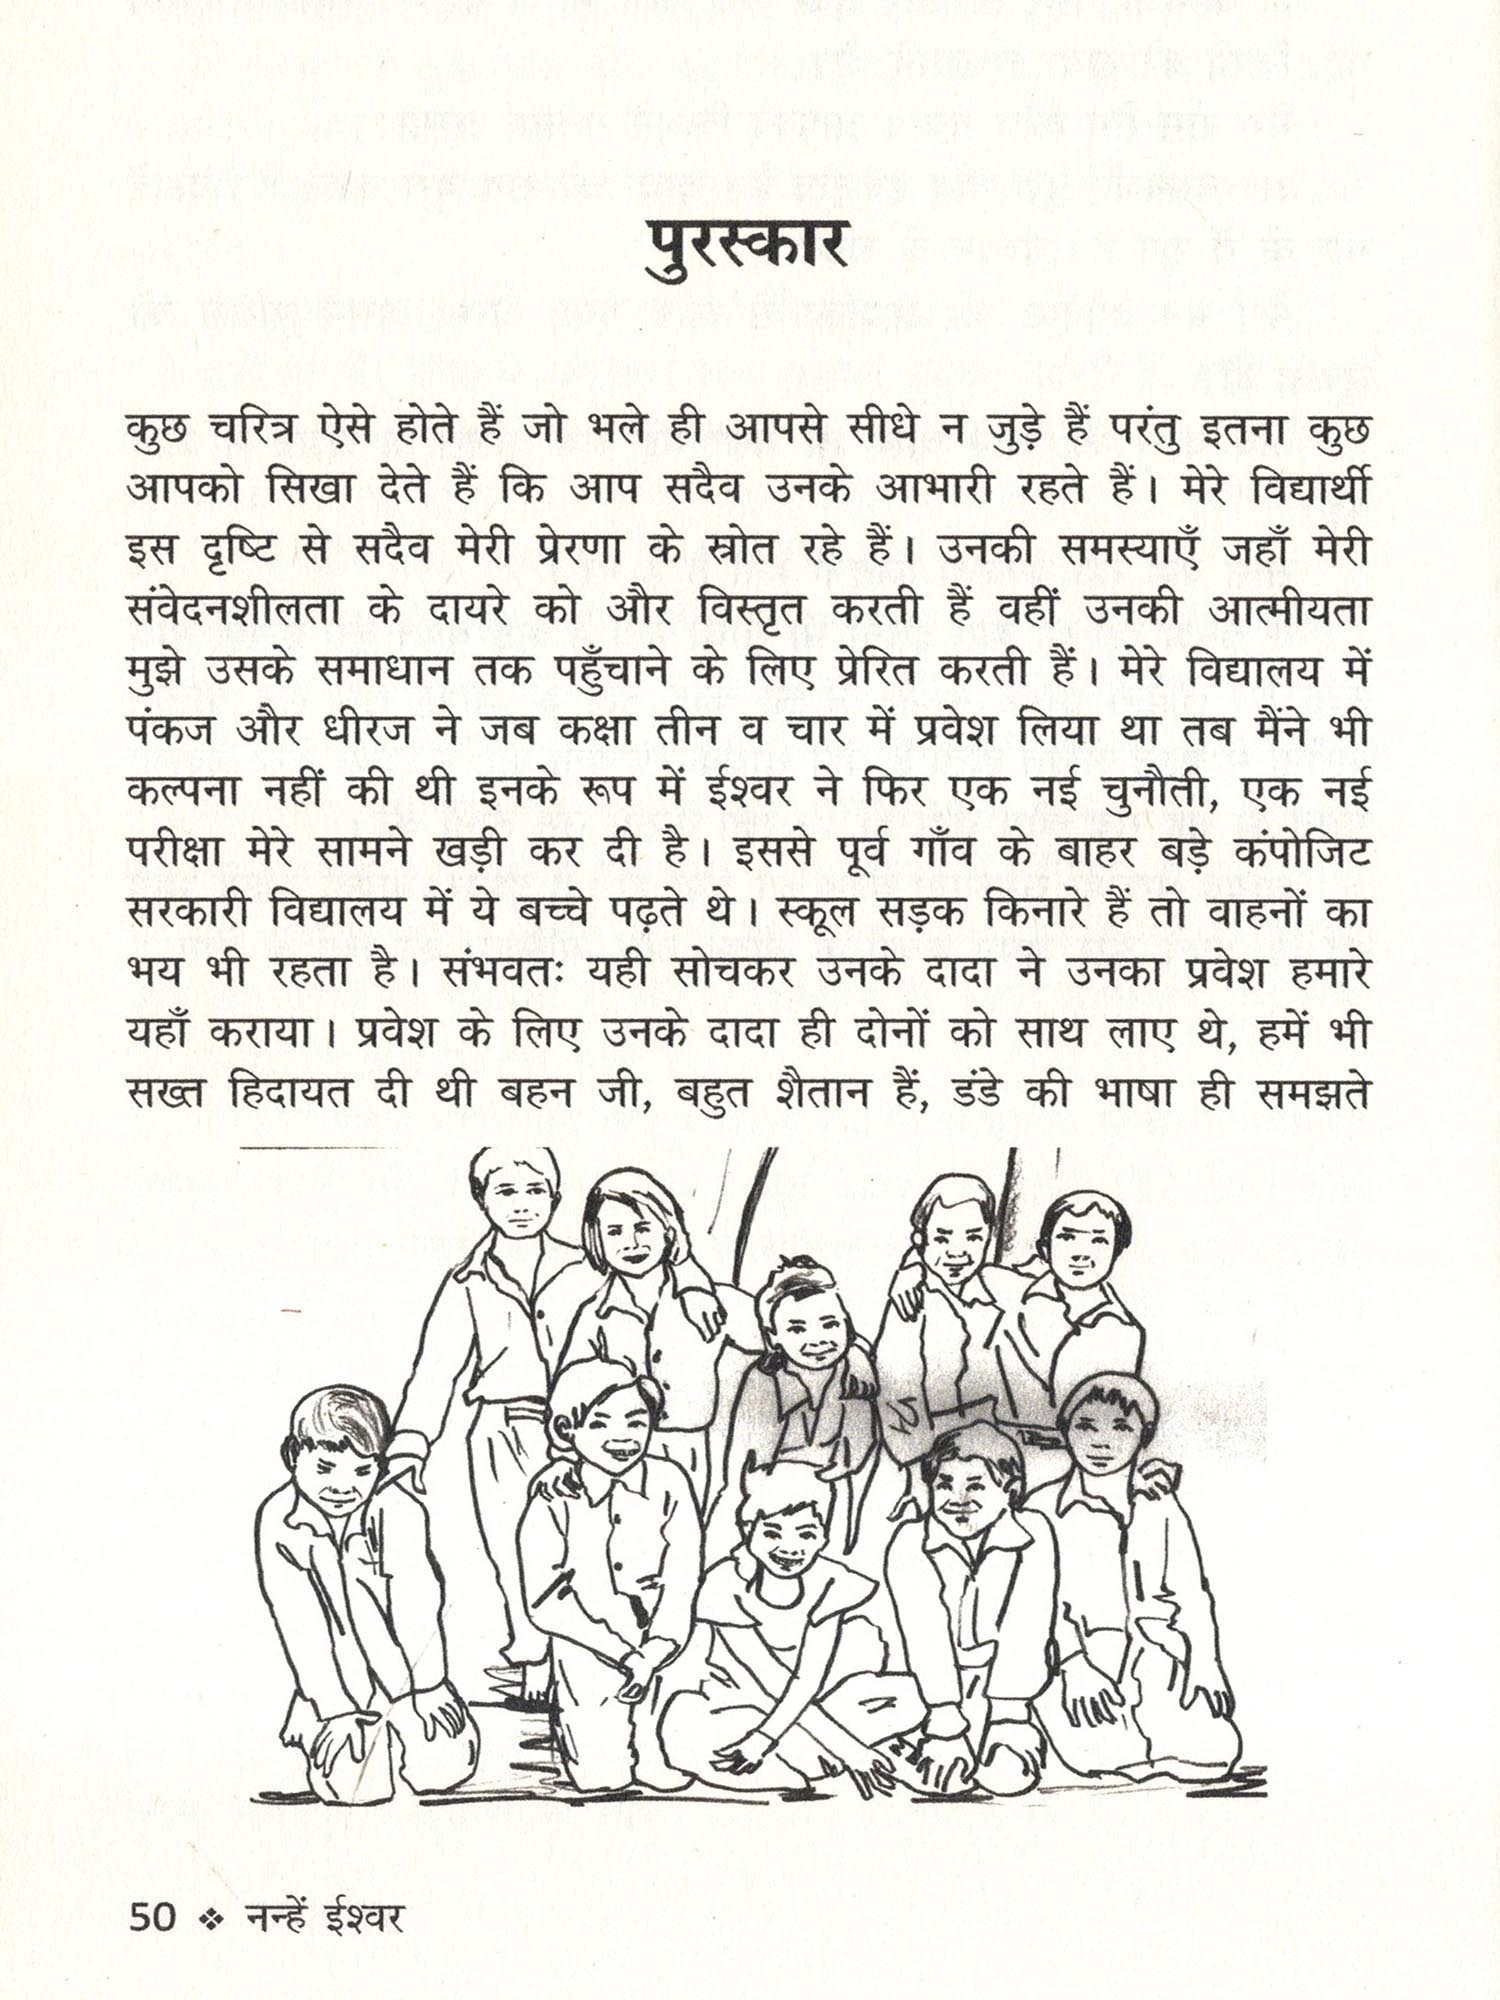 पुरस्कार
कुछ चरित्र ऐसे होते हैं जो भले ही आपसे सीधे न जुड़े हैं परंतु इतना कुछ
आपको सिखा देते हैं कि आप सदैव उनके आभारी रहते हैं। मेरे विद्यार्थी
इस दृष्टि से सदैव मेरी प्रेरणा के स्रोत रहे हैं। उनकी समस्याएँ जहाँ मेरी
संवेदनशीलता के दायरे को और विस्तृत करती हैं वहीं उनकी आत्मीयता
मुझे उसके समाधान तक पहुँचाने के लिए प्रेरित करती हैं। मेरे विद्यालय में
पंकज और धीरज ने जब कक्षा तीन व चार में प्रवेश लिया था तब मैंने भी
कल्पना नहीं की थी इनके रूप में ईश्वर ने फिर एक नई चुनौती, एक नई
परीक्षा मेरे सामने खड़ी कर दी है। इससे पूर्व गाँव के बाहर बड़े कंपोजिट
सरकारी विद्यालय में ये बच्चे पढ़ते थे। स्कूल सड़क किनारे हैं तो वाहनों का
भय भी रहता है। संभवतः यही सोचकर उनके दादा ने उनका प्रवेश हमारे
यहाँ कराया। प्रवेश के लिए उनके दादा ही दोनों को साथ लाए थे, हमें भी
सख्त हिदायत दी थी बहन जी, बहुत शैतान हैं, डंडे की भाषा ही समझते
50 ❖ नन्हें ईश्वर